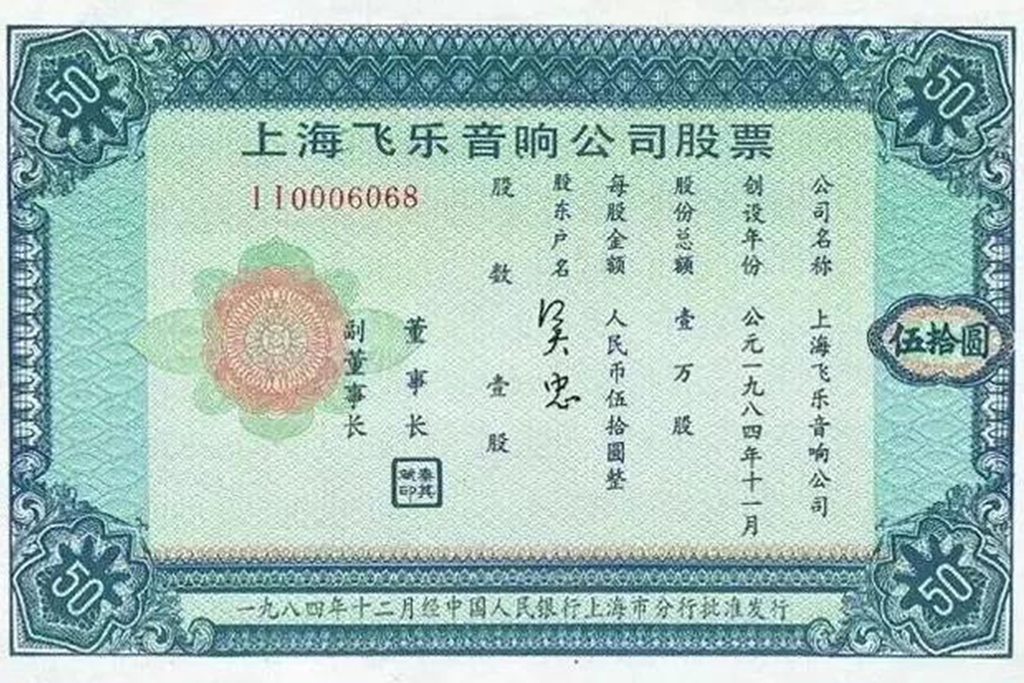 50
50
上海飞乐音响公司股票
110006068
公司名称 上海飞乐音响公司
创设年份 公元一九八四年十一月
股份总额 壹万股
每股金额 人民币伍拾圆整
股东户名 吴忠
股数 壹股
董事长
秦其斌印
副董事长
伍拾圆
50
50
一九八四年十二月经中国人民银行上海市分行批准发行